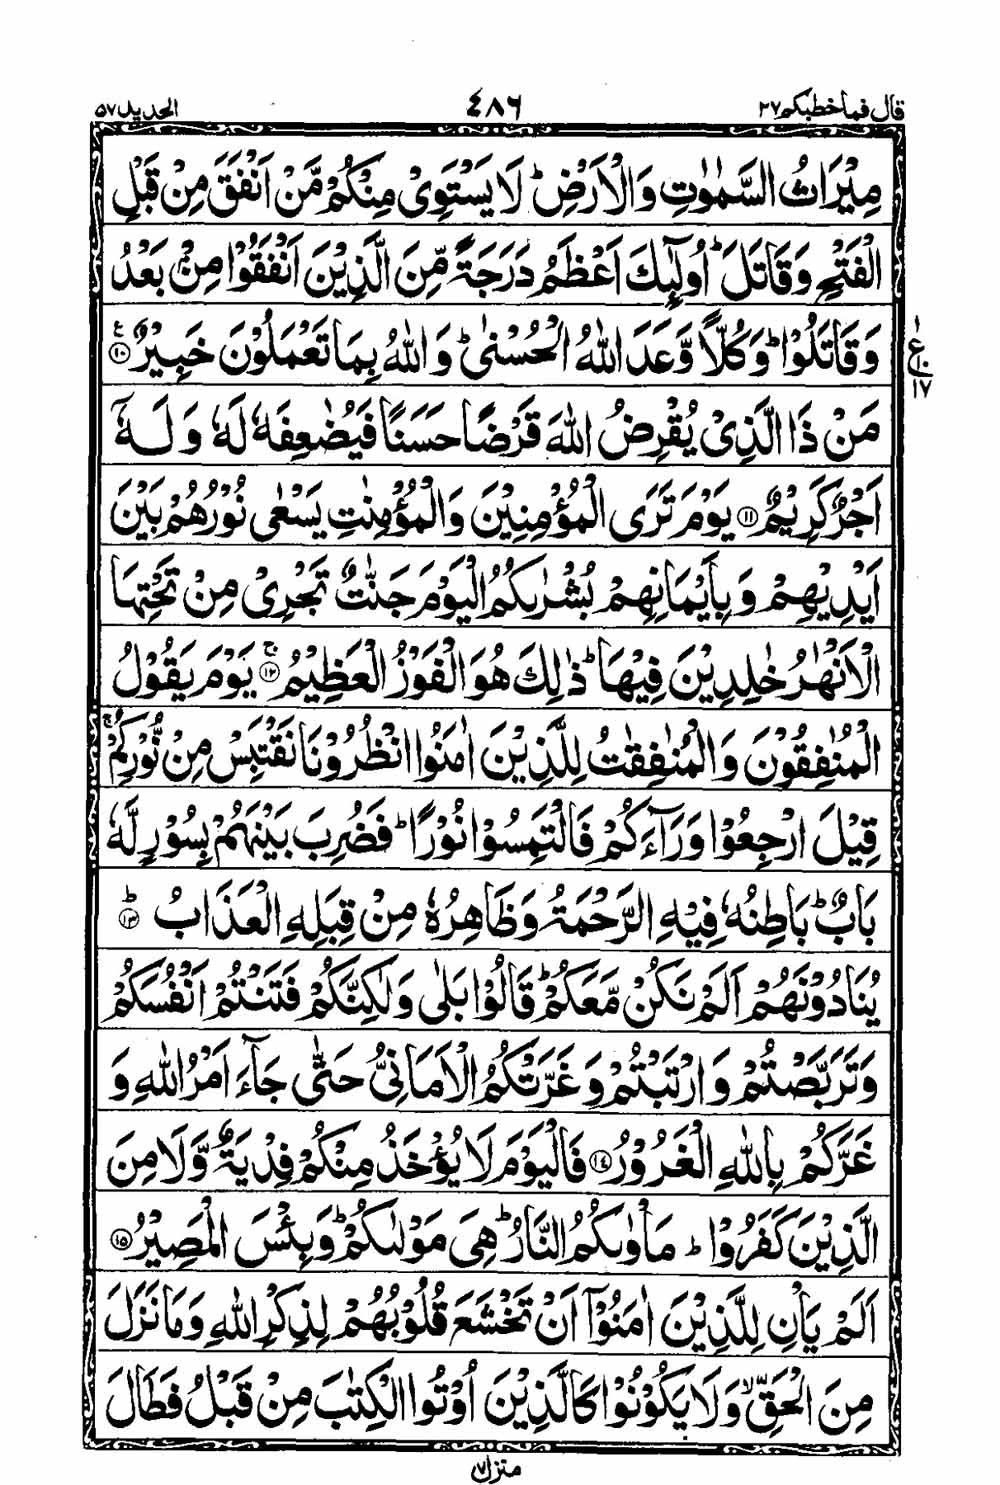 قال فما خطبكم ٢٧ ٤٨٦ الحديد ٥٧
مِيْرَاثُ السَّمٰوٰتِ وَالْاَرْضِ ؕ لَا يَسْتَوِیْ مِنْكُمْ مَّنْ اَنْفَقَ مِنْ قَبْلِ
الْفَتْحِ وَقَاتَلَ ؕ اُولٰٓئِكَ اَعْظَمُ دَرَجَةً مِّنَ الَّذِيْنَ اَنْفَقُوْا مِنْۢ بَعْدُ
وَقَاتَلُوْا ؕ وَكُلًّا وَّعَدَ اللّٰهُ الْحُسْنٰى ؕ وَاللّٰهُ بِمَا تَعْمَلُوْنَ خَبِيْرٌ ۧ ﴿١٠﴾
ع ١٧
مَنْ ذَا الَّذِیْ يُقْرِضُ اللّٰهَ قَرْضًا حَسَنًا فَيُضٰعِفَهٗ لَهٗ وَ لَهٗۤ
اَجْرٌ كَرِيْمٌ ﴿١١﴾ يَوْمَ تَرَى الْمُؤْمِنِيْنَ وَالْمُؤْمِنٰتِ يَسْعٰى نُوْرُهُمْ بَيْنَ
اَيْدِيْهِمْ وَبِاَيْمَانِهِمْ بُشْرٰىكُمُ الْيَوْمَ جَنّٰتٌ تَجْرِیْ مِنْ تَحْتِهَا
الْاَنْهٰرُ خٰلِدِيْنَ فِيْهَا ؕ ذٰلِكَ هُوَ الْفَوْزُ الْعَظِيْمُ ۚ ﴿١٢﴾ يَوْمَ يَقُوْلُ
الْمُنٰفِقُوْنَ وَالْمُنٰفِقٰتُ لِلَّذِيْنَ اٰمَنُوا انْظُرُوْنَا نَقْتَبِسْ مِنْ نُّوْرِكُمْ ۚ
قِيْلَ ارْجِعُوْا وَرَآءَكُمْ فَالْتَمِسُوْا نُوْرًا ؕ فَضُرِبَ بَيْنَهُمْ بِسُوْرٍ لَّهٗ
بَابٌ ؕ بَاطِنُهٗ فِيْهِ الرَّحْمَةُ وَظَاهِرُهٗ مِنْ قِبَلِهِ الْعَذَابُ ؕ ﴿١٣﴾
يُنَادُوْنَهُمْ اَلَمْ نَكُنْ مَّعَكُمْ ؕ قَالُوْا بَلٰى وَلٰكِنَّكُمْ فَتَنْتُمْ اَنْفُسَكُمْ
وَتَرَبَّصْتُمْ وَارْتَبْتُمْ وَغَرَّتْكُمُ الْاَمَانِیُّ حَتّٰى جَآءَ اَمْرُ اللّٰهِ وَ
غَرَّكُمْ بِاللّٰهِ الْغَرُوْرُ ﴿١٤﴾ فَالْيَوْمَ لَا يُؤْخَذُ مِنْكُمْ فِدْيَةٌ وَّلَا مِنَ
الَّذِيْنَ كَفَرُوْا ؕ مَاْوٰىكُمُ النَّارُ ؕ هِیَ مَوْلٰىكُمْ ؕ وَبِئْسَ الْمَصِيْرُ ﴿١٥﴾
اَلَمْ يَاْنِ لِلَّذِيْنَ اٰمَنُوْۤا اَنْ تَخْشَعَ قُلُوْبُهُمْ لِذِكْرِ اللّٰهِ وَمَا نَزَلَ
مِنَ الْحَقِّ ۙ وَلَا يَكُوْنُوْا كَالَّذِيْنَ اُوْتُوا الْكِتٰبَ مِنْ قَبْلُ فَطَالَ
منزل ٧